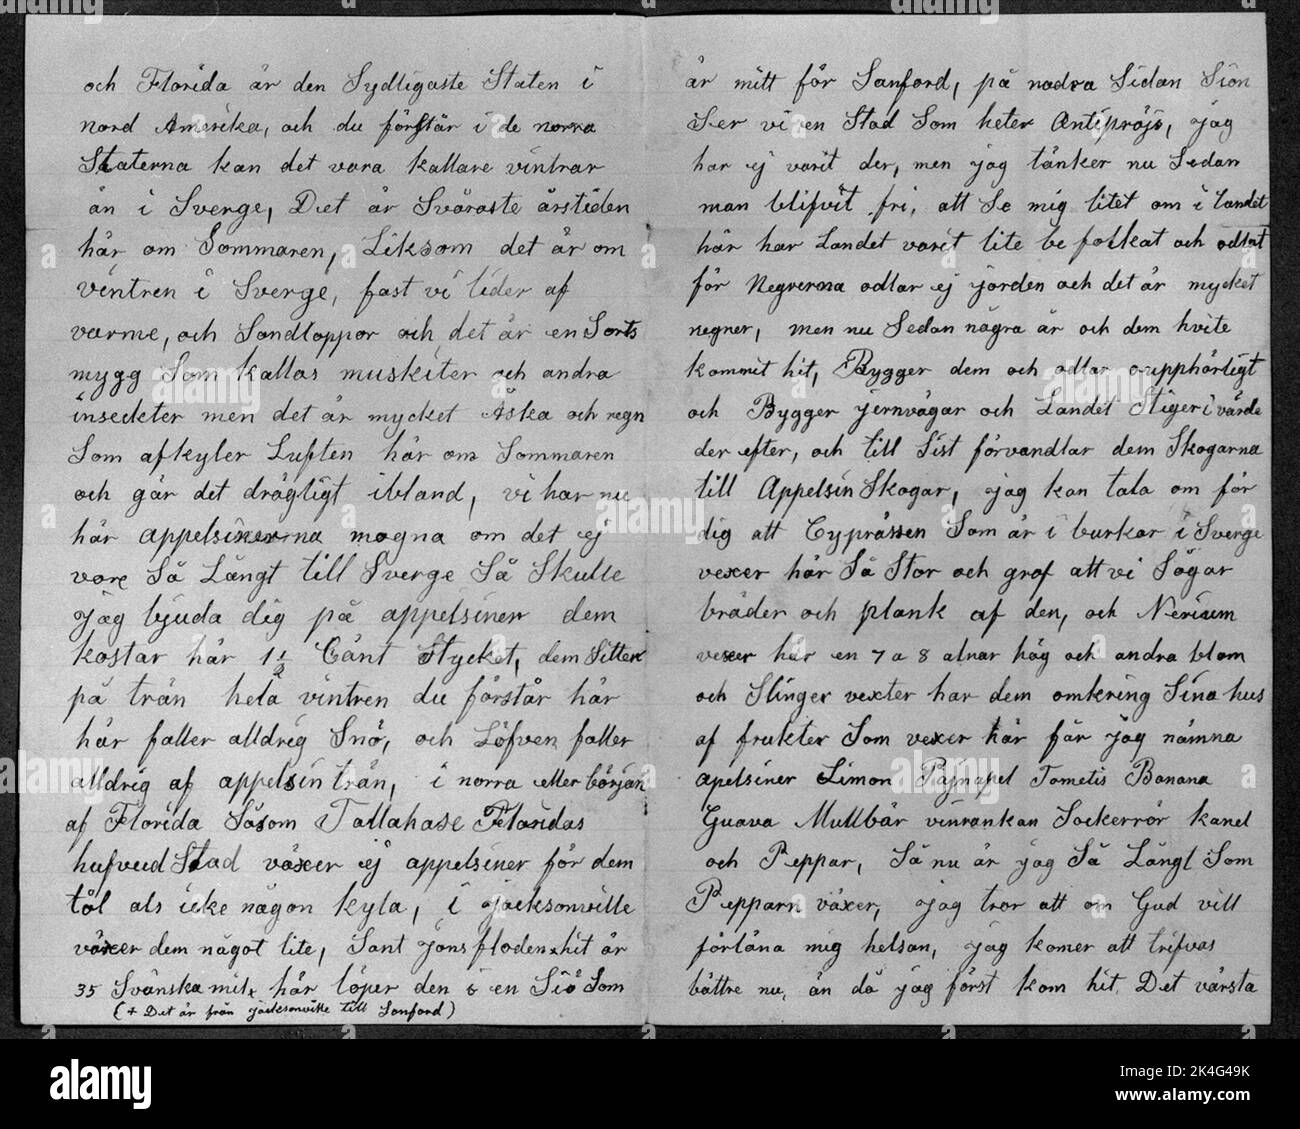 och Florida är den Sydligaste Staten i
nord Amerika, och du förstår i de norra
Staterna kan det vara kallare vintrar
än i Sverge, Det är Svåraste årstiden
här om Sommaren, Liksom det är om
vintren i Sverge, fast vi lider af
varme, och Sandloppor och det är en Sorts
mygg Som kallas muskiter och andra
inseckter men det är mycket Åska och regn
Som afkyler Luften här om Sommaren
och går det drägligt ibland, vi har nu
här appelsinerna mogna om det ej
vore Så Långt till Sverge Så Skulle
jag bjuda dig på appelsiner dem
kostar här 1 1/2 Cånt Stycket, dem Sitter
på trän hela vintren du förstår här
här faller alldrig Snö, och Löfven faller
alldrig af appelsin trän, i norra eller början
af Florida Såsom Tallahase Floridas
hufvud Stad växer ej appelsiner för dem
tål als icke någon kyla, i jacksonville
växer dem något lite, Sant Jons floden x hit är
35 Svänska mil x här löper den i en Siö Som
(+ Det är från jacksonville till Sanford)
är mitt för Sanford, på nadra Sidan Siön
Ser vi en Stad Som heter Antipröjs, jag
har ej varit der, men jag tänker nu Sedan
man blifvit fri, att Se mig litet om i Landet
här har Landet varit lite be folkat och odlat
för Negrerna odlar ej jorden och det är mycket
negner, men nu Sedan några år och dem hvite
kommit hit, Bygger dem och odlar oupphörligt
och Bygger jernvägar och Landet Stiger i värde
der efter, och till Sist förvandlar dem Skogarna
till Appelsin Skogar, jag kan tala om för
dig att Cyprässen Som är i burkar i Sverge
vexer här Så Stor och grof att vi Sågar
bräder och plank af den, och Nerium
vexer här en 7 a 8 alnar hög och andra blom
och Slinger vexter har dem omkring Sina hus
af frukter Som vexer här får jag nämna
apelsiner Limon Pajnapel Tometis Banana
Guava Mullbär vinrankan Sockerrör kanel
och Peppar, Så nu är jag Så Långt Som
Pepparn växer, jag tror att om Gud vill
förläna mig helsan, jag komer att trifvas
bättre nu, än då jag först kom hit. Det värsta
alamy
2C4G49K
www.alamy.com